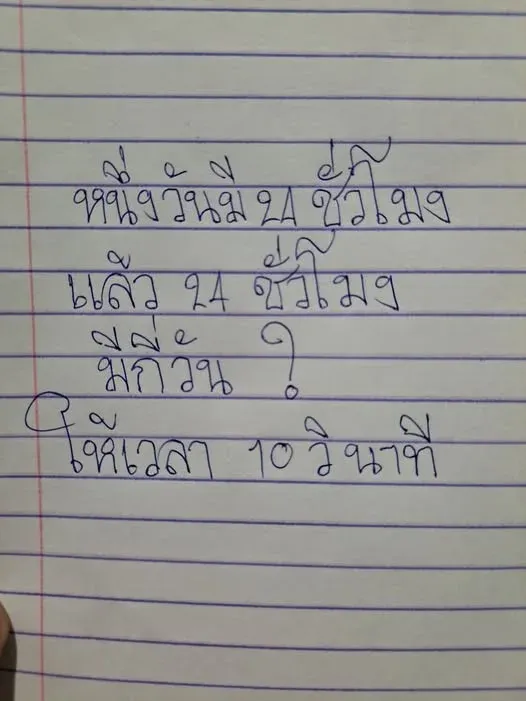 หนึ่งวันมี 24 ชั่วโมง
แล้ว 24 ชั่วโมง
มีกี่วัน ?
ให้เวลา 10 วินาที